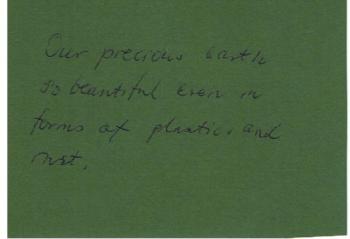 Our precious earth
is beautiful even in
forms of plastics and
rust.